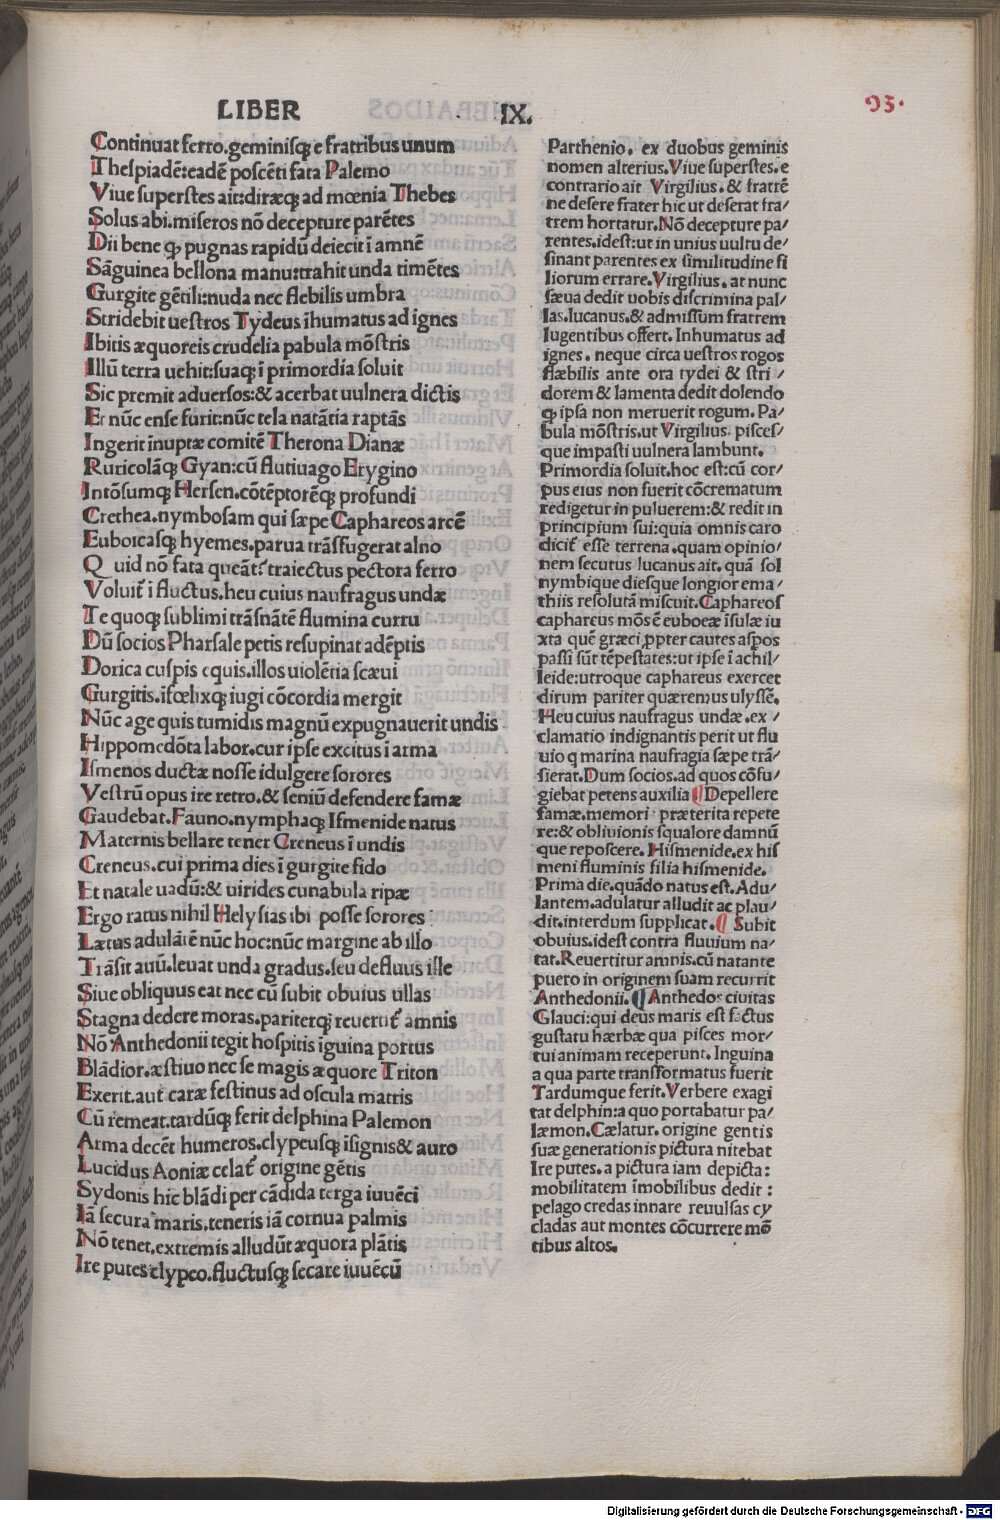 LIBER IX. 93.
Continuat ferro.geminisqȝ e fratribus unum
Thespiadē:eadē poscēti fata Palemo
Viue superstes ait:diræqȝ ad mœnia Thebes
Solus abi.miseros nō decepture parētes
Dii bene qȝ pugnas rapidū deiecit ī amnē
Sāguinea bellona manu:trahit unda timētes
Gurgite gētili:nuda nec flebilis umbra
Stridebit uestros Tydeus īhumatus ad ignes
Ibitis æquoreis crudelia pabula mōstris
Illū terra uehit:suaqȝ ī primordia soluit
Sic premit aduersos:& acerbat uulnera dictis
Et nūc ense furit:nūc tela natātia raptās
Ingerit īnuptæ comitē Therona Dianæ
Ruricolāqȝ Gyan:cū flutiuago Erygino
Intōsumqȝ Hersen.cōtēptorēqȝ profundi
Crethea.nymbosam qui sæpe Caphareos arcē
Euboicasqȝ hyemes.parua trāsfugerat alno
Quid nō fata queāt? traiectus pectora ferro
Voluit᷑ ī fluctus.heu cuius naufragus undæ
Te quoqȝ sublimi trāsnātē flumina curru
Dū socios Pharsale petis resupinat adēptis
Dorica cuspis equis.illos uiolētia scæui
Gurgitis.īfœlixqȝ iugi cōcordia mergit
Nūc age quis tumidis magnū expugnauerit undis
Hippomedōta labor.cur ipse excitus ī arma
Ismenos ductæ nosse īdulgere sorores
Vestrū opus ire retro.& seniū defendere famæ
Gaudebat.Fauno.nymphaqȝ Ismenide natus
Maternis bellare tener Creneus ī undis
Creneus.cui prima dies ī gurgite fido
Et natale uadū:& uirides cunabula ripæ
Ergo ratus nihil Helysias ibi posse sorores
Lætus adulātē nūc hoc:nūc margine ab illo
Trāsit auū.leuat unda gradus.seu defluus ille
Siue obliquus eat nec cū subit obuius ullas
Stagna dedere moras.pariterqȝ reuertit᷑ amnis
Nō Anthedonii tegit hospitis īguina portus
Blādior.æstiuo nec se magis æquore Triton
Exerit.aut caræ festinus ad oscula matris
Cū remeat.tardūqȝ ferit delphina Palemon
Arma decēt humeros.clypeusqȝ īsignis& auro
Lucidus Aoniæ celat᷑ origine gētis
Sydonis hic blādi per cādida terga iuuēci
Iā secura maris.teneris iā cornua palmis
Nō tenet.extremis alludūt æquora plātis
Ire putes clypeo.fluctusqȝ secare iuuēcū
Parthenio. ex duobus geminis
nomen alterius.Viue superstes.e
contrario ait Virgilius.& fratrē
ne desere frater hic ut deserat fra/
trem hortatur.Nō decepture pa/
rentes.idest:ut in unius uultu de/
sinant parentes ex similitudine fi
liorum errare.Virgilius.at nunc
sæua dedit uobis discrimina pal/
las.lucanus.& admissum fratrem
lugentibus offert. Inhumatus ad
ignes. neque circa uestros rogos
flæbilis ante ora tydei & stri/
dorem & lamenta dedit dolendo
qȝ ipsa non meruerit rogum. Pa/
bula mōstris.ut Virgilius. pisces/
que impasti uulnera lambunt.
Primordia soluit.hoc est:cū cor/
pus eius non fuerit cōcrematum
redigetur in puluerem:& redit in
principium sui:quia omnis caro
dicit᷑ esse terrena.quam opinio/
nem secutus lucanus ait. quā sol
nymbique diesque longior ema/
thiis resolutā miscuit.Caphareos
caphareus mōs ē euboeæ īsulæ iu
xta quē græci ꝓpter cautes aspos
passi sūt tēpestates:ut ipse ī achil/
leide:utroque caphareus exercet
dirum pariter quæremus ulyssē.
Heu cuius naufragus undæ.ex/
clamatio indignantis perit ut flu
uio q marina naufragia sæpe trā/
sierat.Dum socios.ad quos cōfu/
giebat petens auxilia ¶Depellere
famæ.memori præterita repete
re:& obliuionis squalore damnū
que reposcere. Hismenide.ex his
meni fluminis filia hismenide.
Prima die.quādo natus est.Adu/
lantem.adulatur alludit ac plau/
dit.interdum supplicat.¶ Subit
obuius.idest contra fluuium na/
tat.Reuertitur amnis.cū natante
puero in originem suam recurrit
Anthedonii.¶Anthedos ciuitas
Glauci:qui deus maris est fectus
gustatu hærbæ qua pisces mor/
tui animam receperunt. Inguina
a qua parte transformatus fuerit
Tardumque ferit.Verbere exagi
tat delphin:a quo portabatur pa/
læmon.Cælatur. origine gentis
suæ generationis pictura nitebat
Ire putes.a pictura iam depicta:
mobilitatem īmobilibus dedit :
pelago credas innare reuulsas cy
cladas aut montes cōcurrere mō
tibus altos.
Digitalisierung gefördert durch die Deutsche Forschungsgemeinschaft - DFG